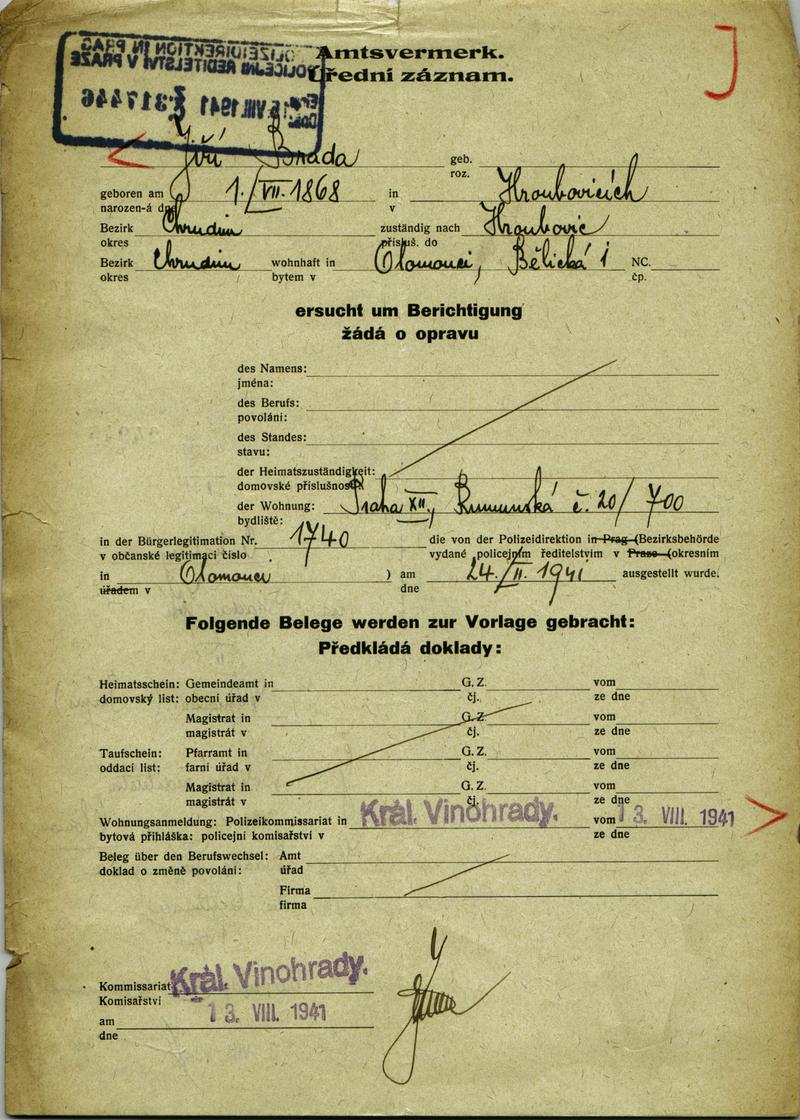 POLIZEIDIREKTION IN PRAG
POLICEJNÍ ŘEDITELSTVÍ V PRAZE
VIII 1941
J
Amtsvermerk.
Úřední záznam.
Jiří Brada geb.
roz.
geboren am 1./VII. 1868 in Hroubovicích
narozen-á dne v
Bezirk Chrudim zuständig nach Hroubovic
okres přísluš. do
Bezirk Chrudim wohnhaft in Olomouci, Bělická 1 NC.
okres bytem v čp.
ersucht um Berichtigung
žádá o opravu
des Namens:
jména:
des Berufs:
povolání:
des Standes:
stavu:
der Heimatszuständigkeit:
domovské příslušnosti
der Wohnung: Praha XII, Rumunská č. 20/700
bydliště:
in der Bürgerlegitimation Nr. 1740 die von der Polizeidirektion in Prag (Bezirksbehörde
v občanské legitimaci číslo vydané policejním ředitelstvím v Praze (okresním
in Olomouci ) am 24./II. 1941 ausgestellt wurde.
úřadem v dne
Folgende Belege werden zur Vorlage gebracht:
Předkládá doklady:
Heimatsschein: Gemeindeamt in G. Z. vom
domovský list: obecní úřad v čj. ze dne
Magistrat in G. Z. vom
magistrát v čj. ze dne
Taufschein: Pfarramt in G. Z. vom
oddací list: farní úřad v čj. ze dne
Magistrat in G. Z. vom
magistrát v čj. ze dne
Wohnungsanmeldung: Polizeikommissariat in Král. Vinohrady. vom 13. VIII. 1941
bytová přihláška: policejní komisařství v ze dne
Beleg über den Berufswechsel: Amt
doklad o změně povolání: úřad
Firma
firma
Kommissariat Král. Vinohrady.
Komisařství
am 13. VIII. 1941
dne